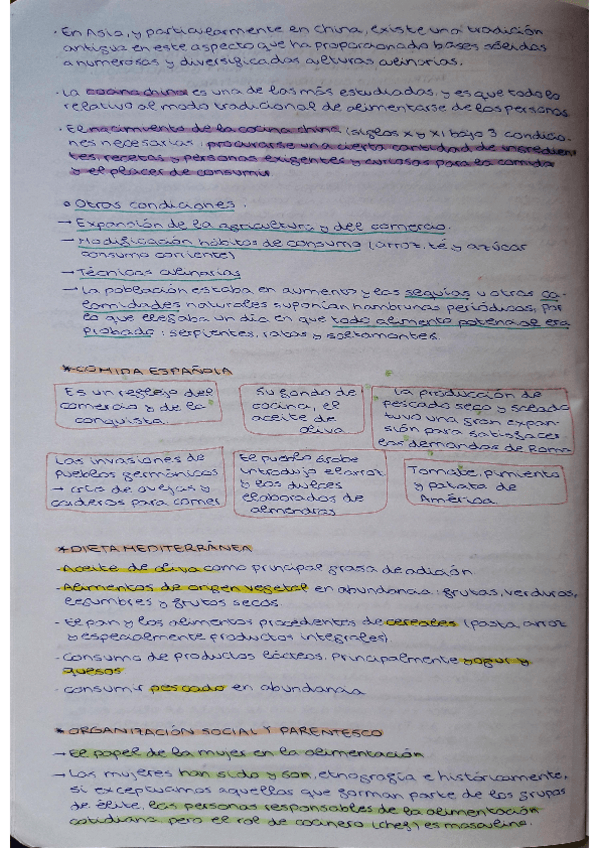 · En Asia, y particularmente en China, existe una tradición
antigua en este aspecto que ha proporcionado bases sólidas
a numerosas y diversificadas culturas culinarias.
· La cocina china es una de las más estudiadas, y es que todo lo
relativo al modo tradicional de alimentarse de las personas
· El nacimiento de la cocina china (siglos X y XI bajo 3 condicio-
nes necesarias: procurarse una cierta cantidad de ingredien
tes, recetas y personas exigentes y curiosas para la comida
y el placer de consumir
• Otras condiciones.
→ Expansión de la agricultura y del comercio.
→ Modificación hábitos de consumo (arroz, té y azúcar
consumo corriente)
→ Técnicas culinarias
→ La población estaba en aumento y las sequías u otras ca-
lamidades naturales suponían hambrunas periódicas, por
lo que llegaba un día en que todo alimento potencial era
probado: serpientes, ratas y saltamontes.
* COMIDA ESPAÑOLA
Es un reflejo del
comercio y de la
conquista.
Su fondo de
cocina, el
aceite de
oliva
La producción de
pescado seco y salado
tuvo una gran expan-
sión para satisfacer
las demandas de Roma
Las invasiones de
Pueblos germánicos
→ cría de ovejas y
corderos para comer
El pueblo árabe
introdujo el arroz
y los dulces
elaborados de
almendras
Tomate, pimiento
y patata de
América.
* DIETA MEDITERRÁNEA
· Aceite de oliva como principal grasa de adición
· Alimentos de origen vegetal en abundancia: frutas, verduras,
legumbres y frutos secos.
· El pan y los alimentos procedentes de cereales (pasta, arroz
y especialmente productos integrales)
· Consumo de productos lácteos. Principalmente yogur y
quesos
· consumir pescado en abundancia
* ORGANIZACIÓN SOCIAL Y PARENTESCO
→ El papel de la mujer en la alimentación
→ Las mujeres han sido y son, etnografía e históricamente,
si exceptuamos aquellas que forman parte de los grupos
de élite, las personas responsables de la alimentación
cotidiana pero el rol de cocinero (chef) es masculino.